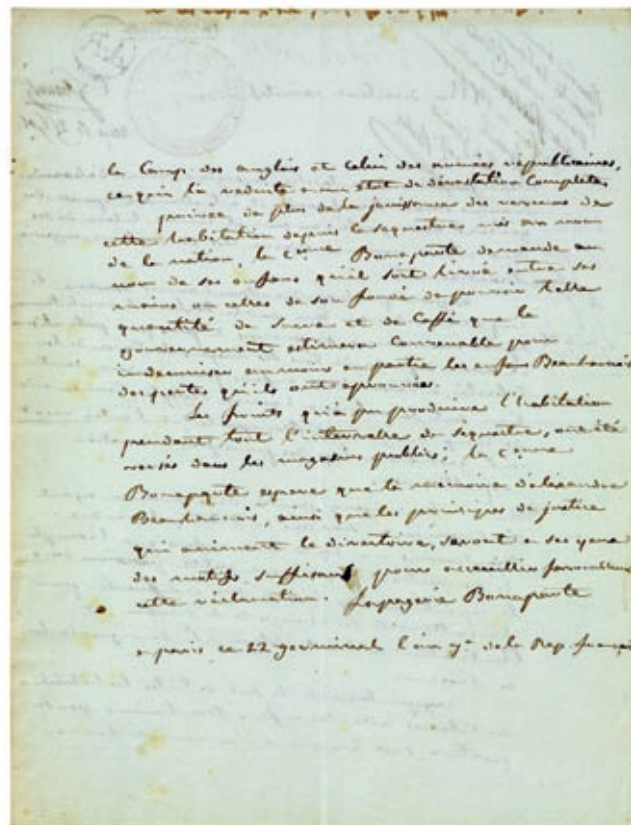 le Camp des anglais et celui des armées républicaines,
ce qui l'a réduite en un état de dévastation complette,
privée de plus de la jouissance des revenus de
cette habitation depuis le sequestre mis au nom
de la nation, la C.enne Bonaparte demande au
nom de ses enfans qu'il soit livré entre ses
mains ou celles de son fondé de pouvoir telle
quantité de sucre et de Caffé que le
gouvernement estimera Convenable pour
indemniser au moins en partie les enfans Beauharnais
des pertes qu'ils ont éprouvées.
Les fruits qu'a pu produire l'habitation
pendant tout l'intervalle du séquestre, ont été
versés dans les magasins publics; la C.enne
Bonaparte espere que la mémoire d'alexandre
Beauharnais, ainsi que les principes de justice
qui animent le directoire, seront à ses yeux
des motifs suffisans pour accueillir
cette réclamation. Lapagerie Bonaparte
a paris ce 22 germinal l'an de la Rep. française